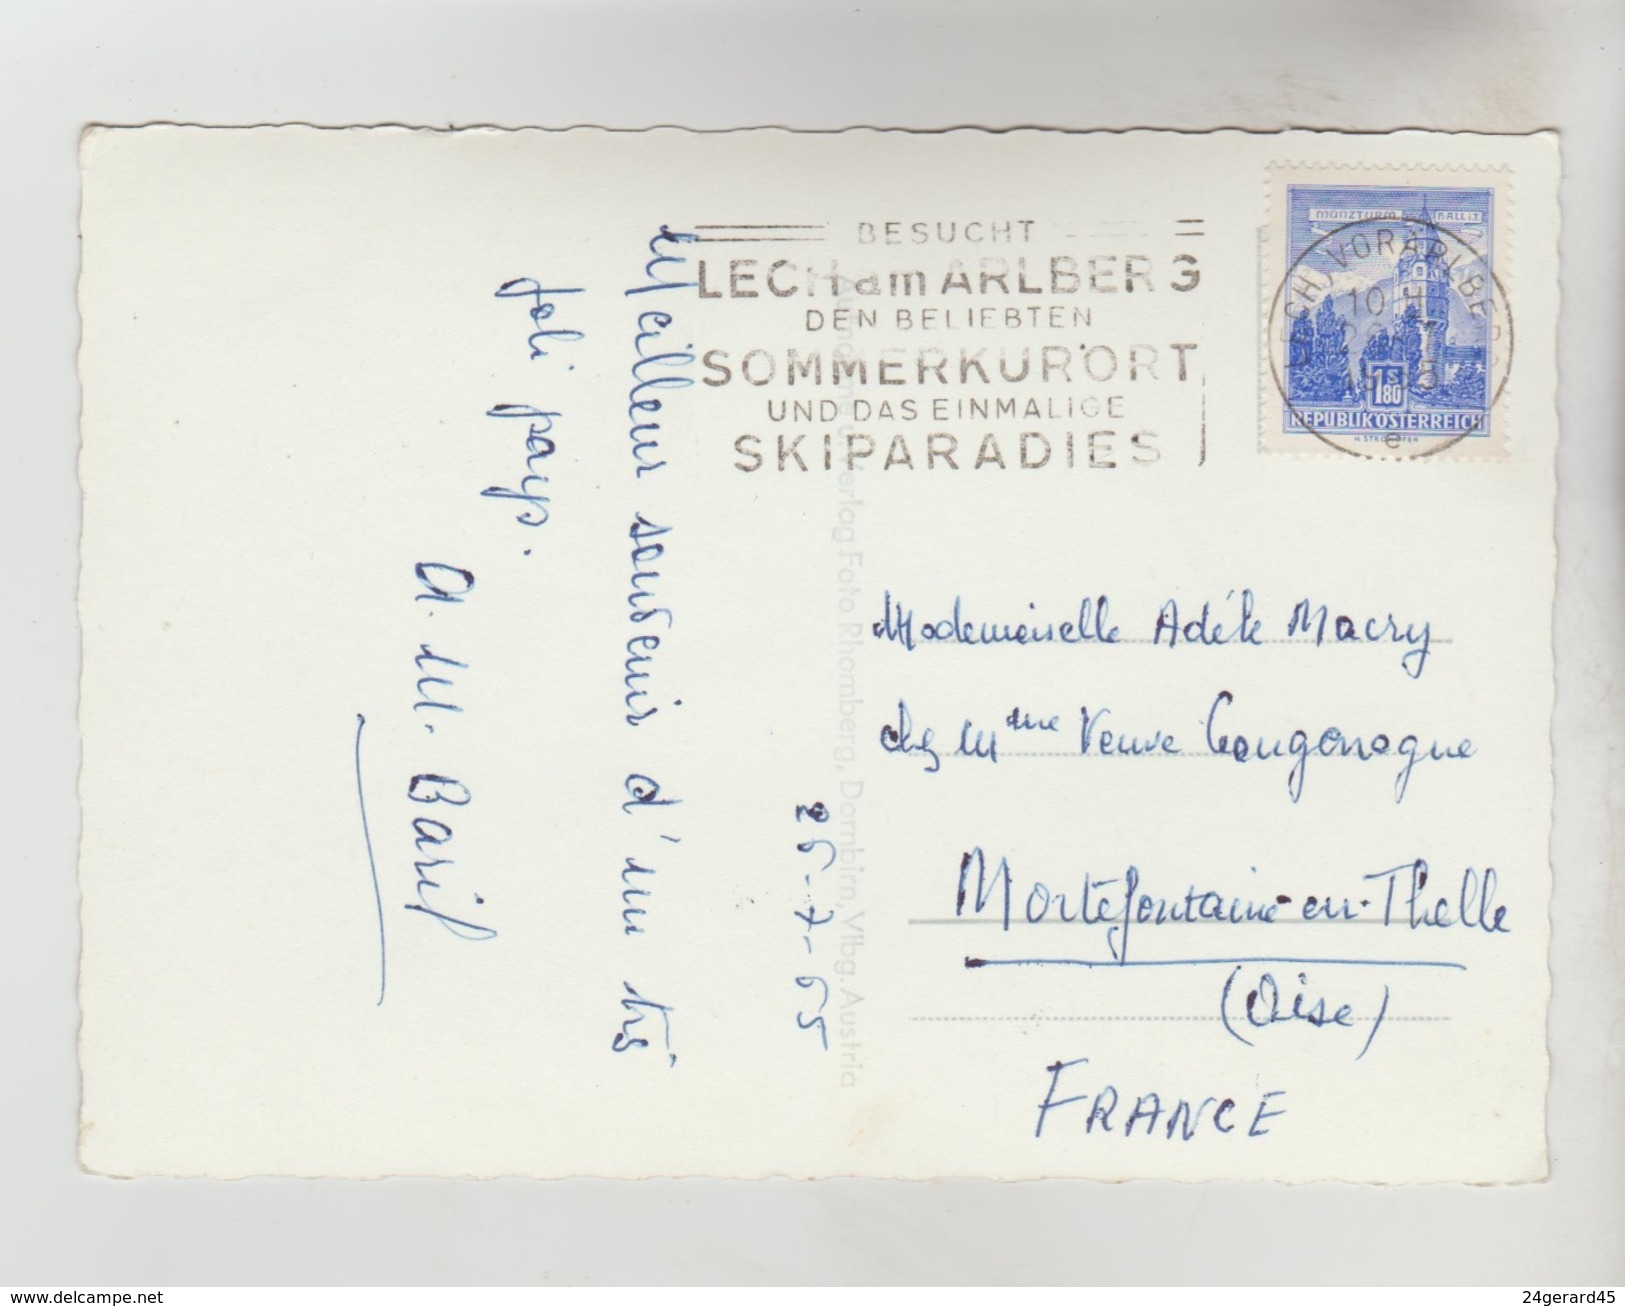 BESUCHT
LECH am ARLBERG
DEN BELIEBTEN
SOMMERKURORT
UND DAS EINMALIGE
SKIPARADIES
MÜNZTURM HALL i.T.
S 1.80
REPUBLIK ÖSTERREICH
LECH, VORARLBERG
10
e
Meilleur souvenir d'un très
joli pays.
A. M. Baril
26-7-65
Verlag Foto Rhomberg, Dornbirn, Vlbg. Austria
Mademoiselle Adèle Macry
chez Mme Veuve Gougenogue
Mortefontaine-en-Thelle
(Oise)
FRANCE
www.delcampe.net
24gerard45